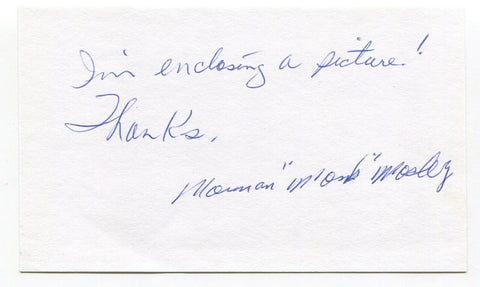 I'm enclosing a picture!
Thanks,
Norman "Monk" Mosley